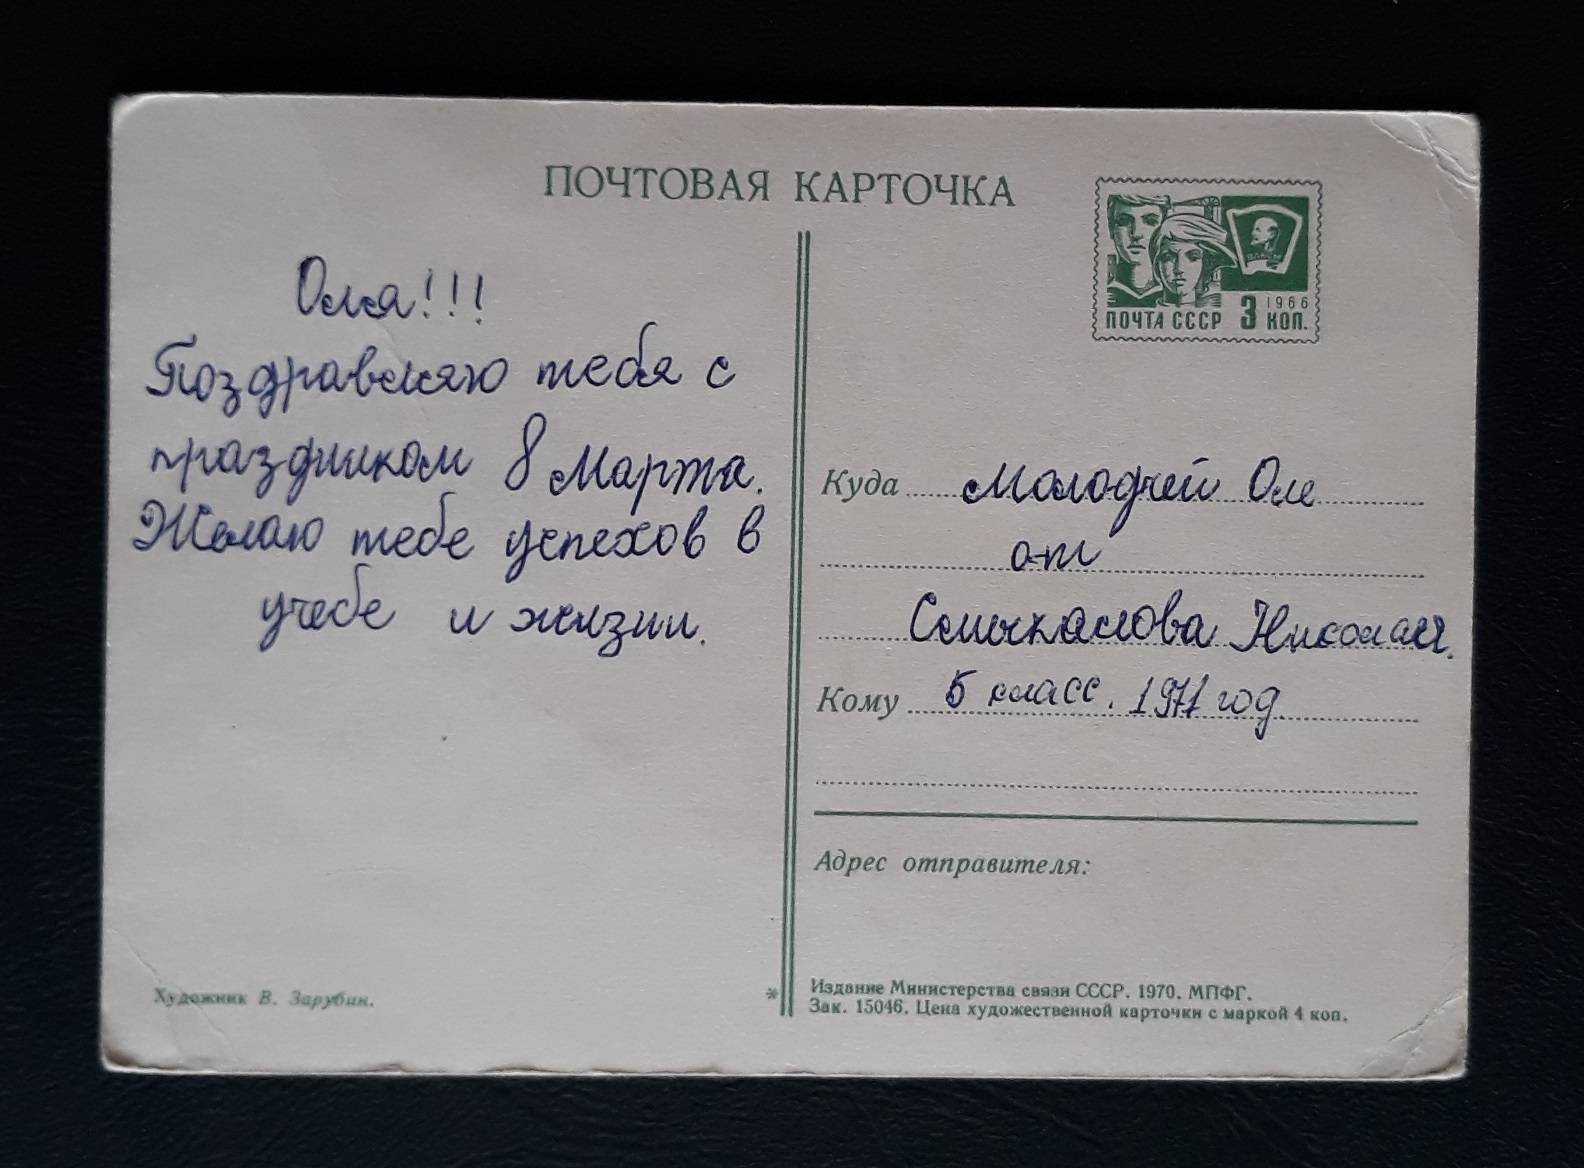 ПОЧТОВАЯ КАРТОЧКА
1966
ПОЧТА СССР 3 КОП.
Оля!!!
Поздравляю тебя с
праздником 8 Марта.
Желаю тебе успехов в
учебе и жизни.
Куда Молодчей Оле
от
Смыкалова Николая.
Кому 5 класс. 1971 год.
Адрес отправителя:
Художник В. Зарубин.
*
Издание Министерства связи СССР. 1970. МПФГ.
Зак. 15046. Цена художественной карточки с маркой 4 коп.